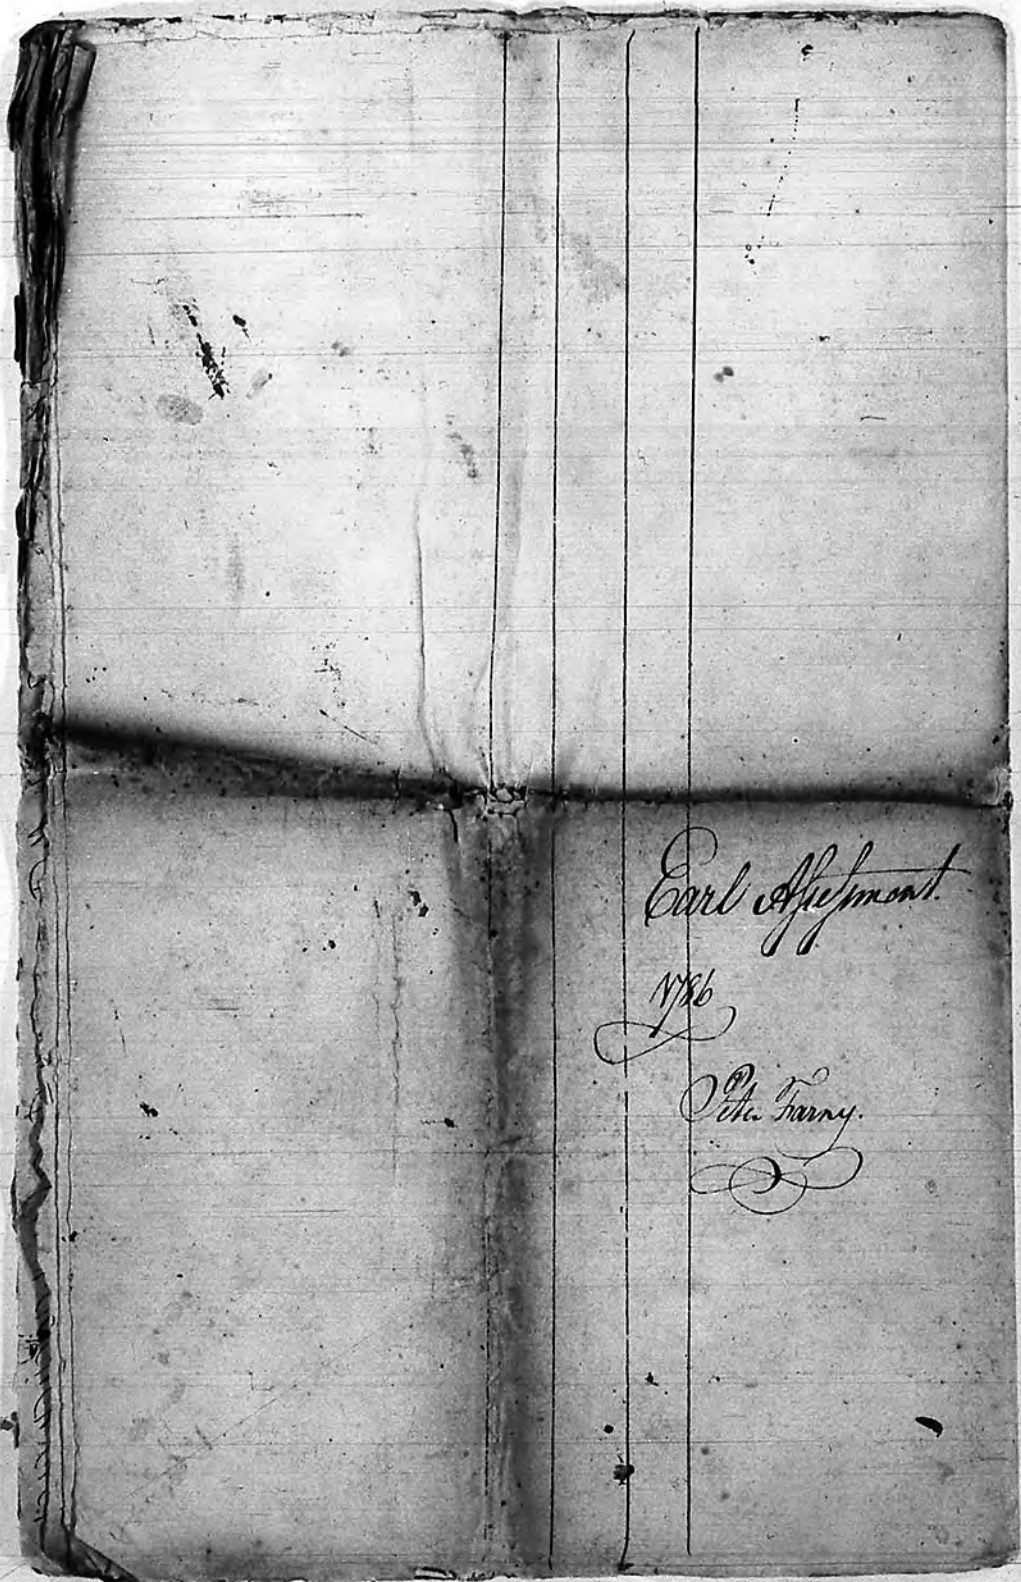 Earl Aſseſsment.
1786
Peter Farny.